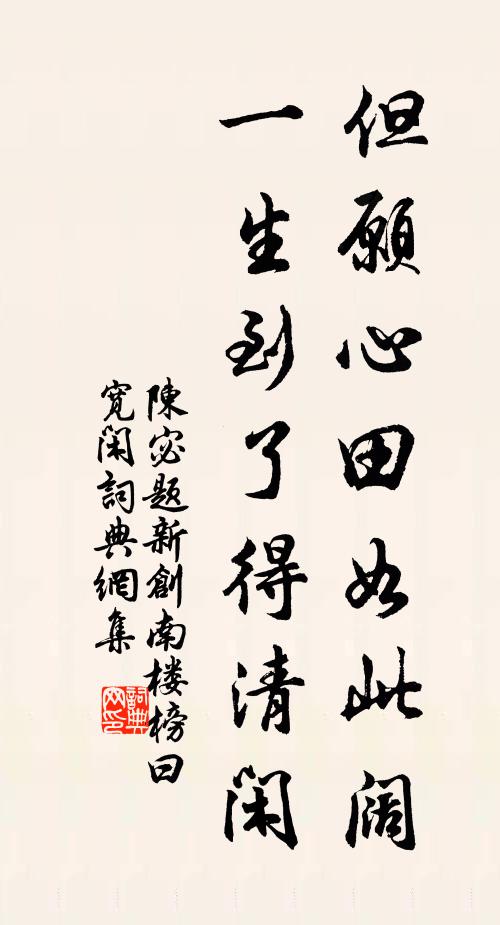 但願心田如此阔
一生到了得清閑
陳宓题新創南楼榜曰
寬閑詞典網集
詞典网印